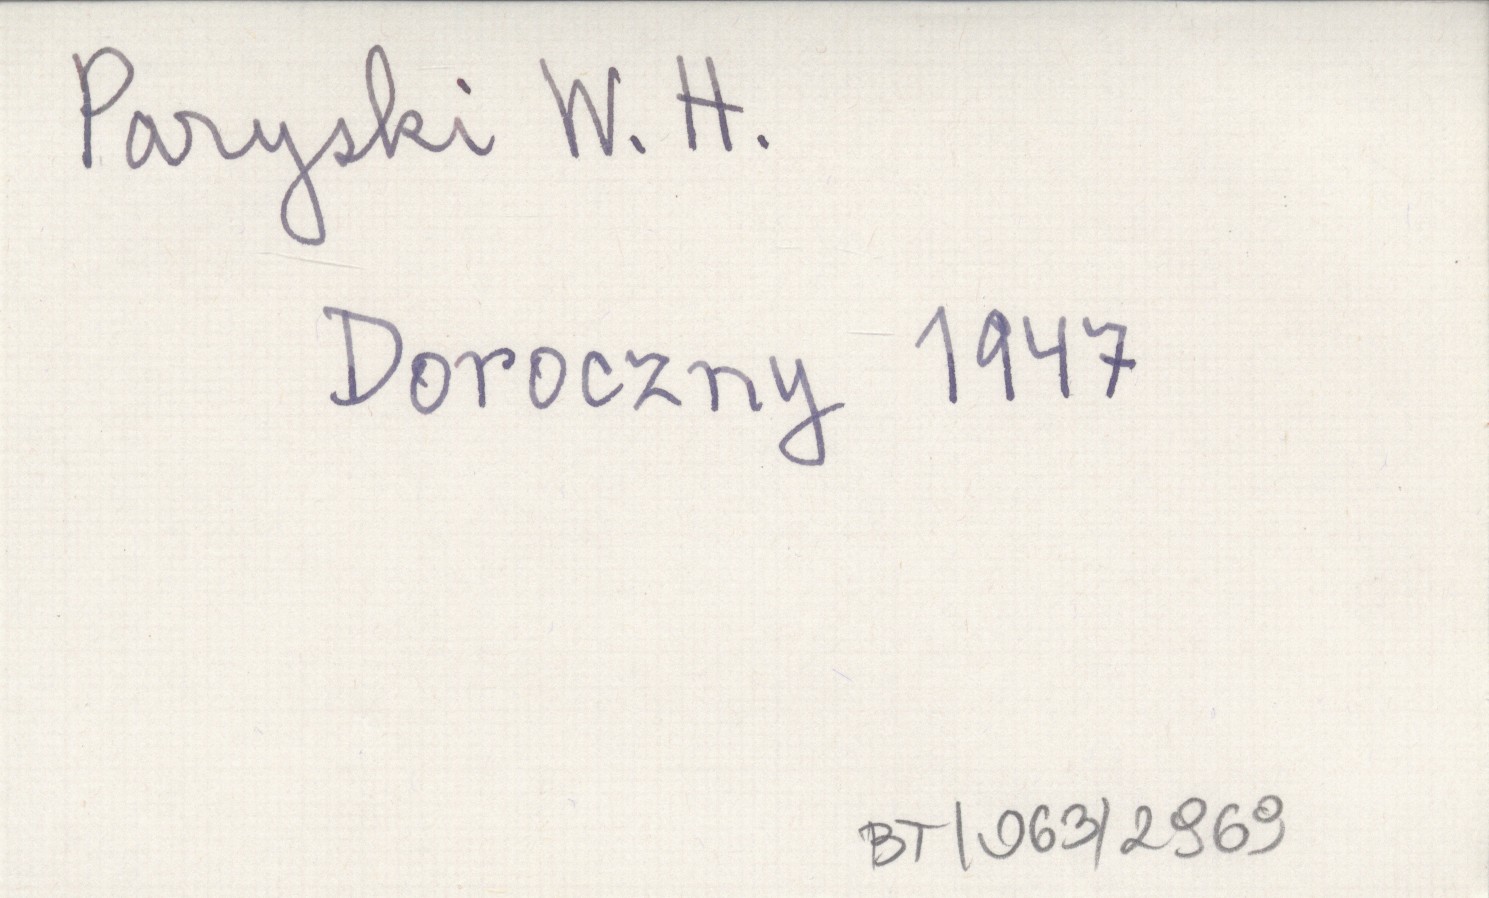 Paryski W. H.
Doroczny 1947
BT/063/2969